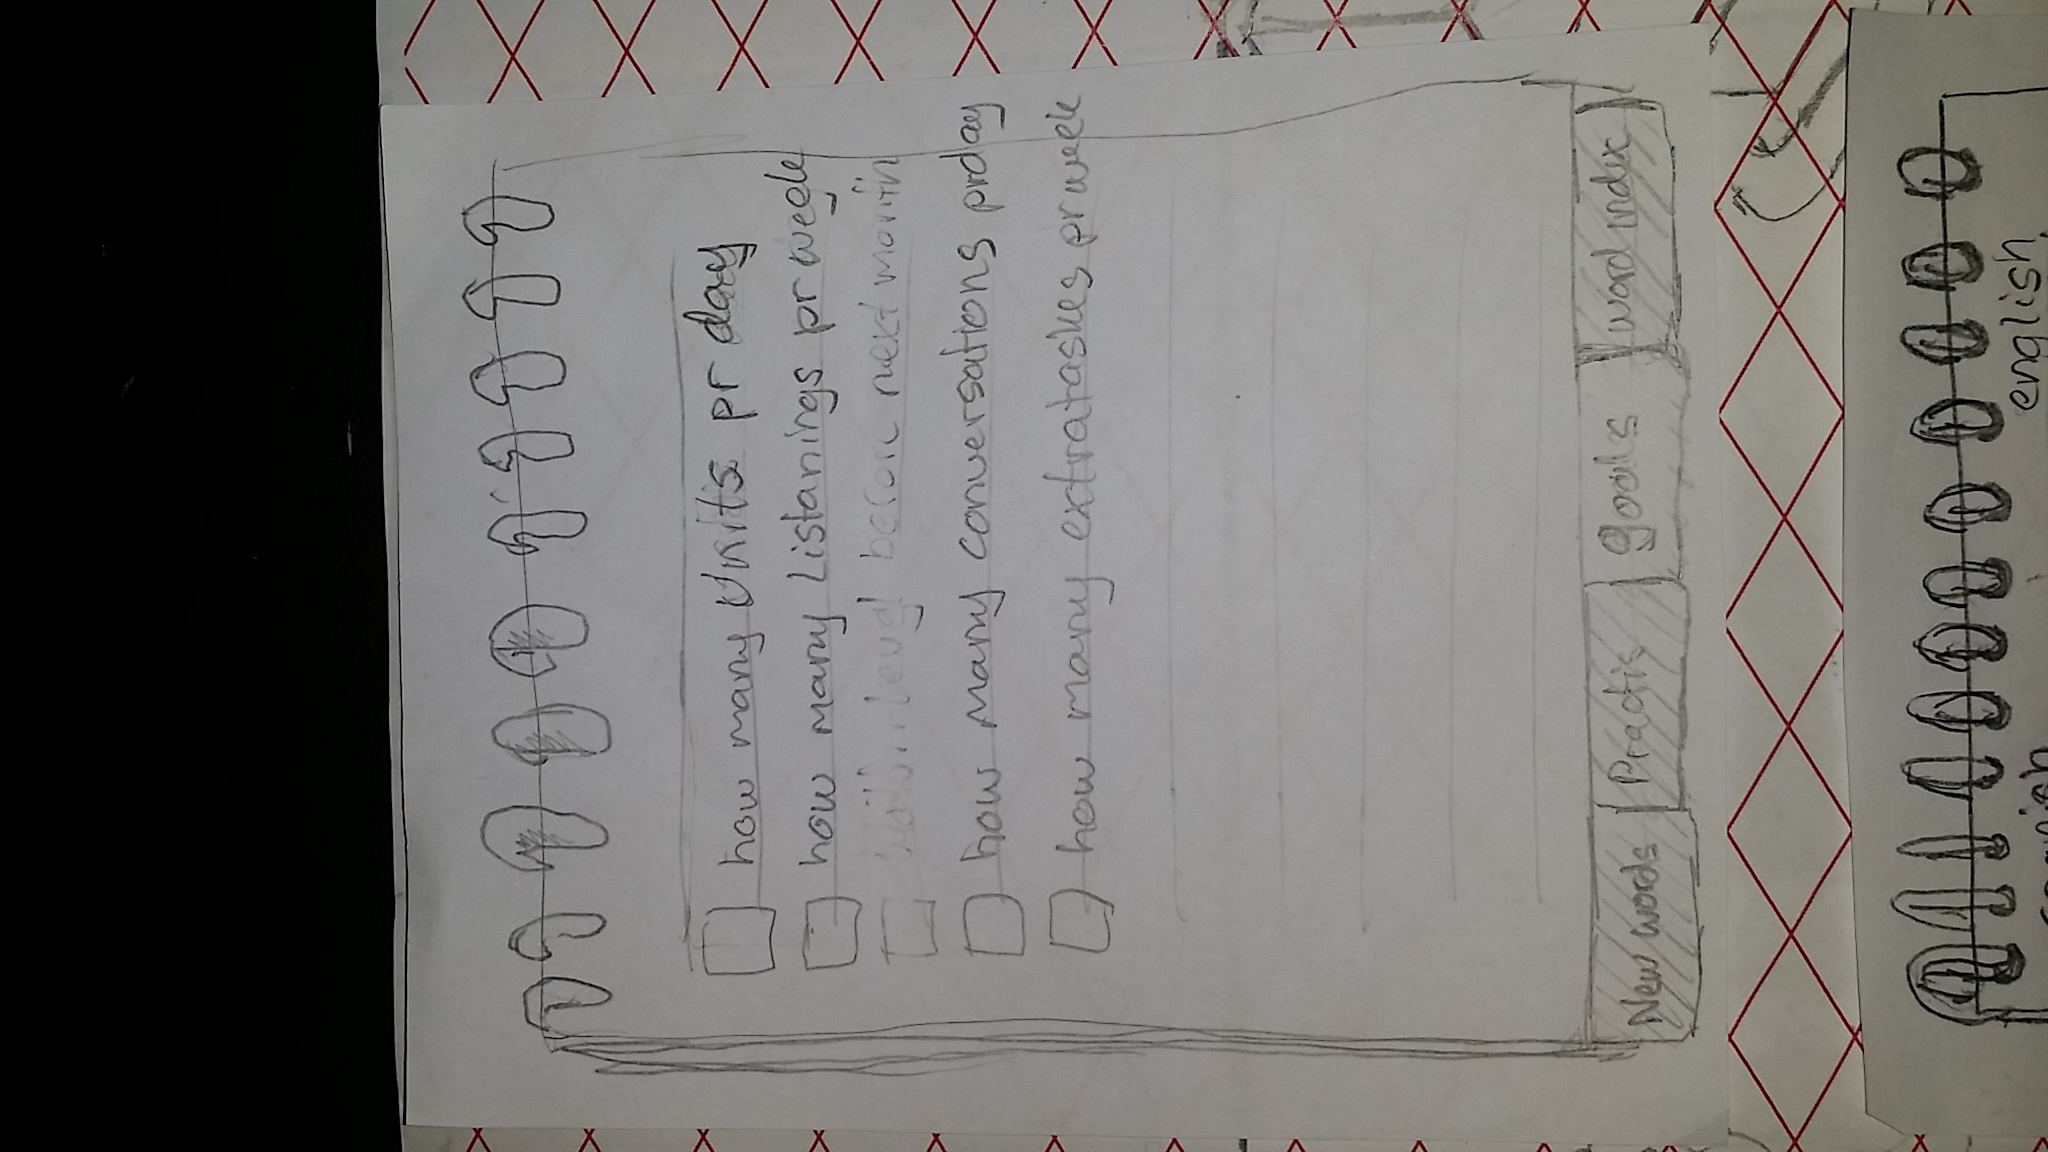 how many Units pr day
how many Listanings pr week
level before next month
how many conversations pr day
how many extrataskes pr week
New words
Practis
goals
word index
english